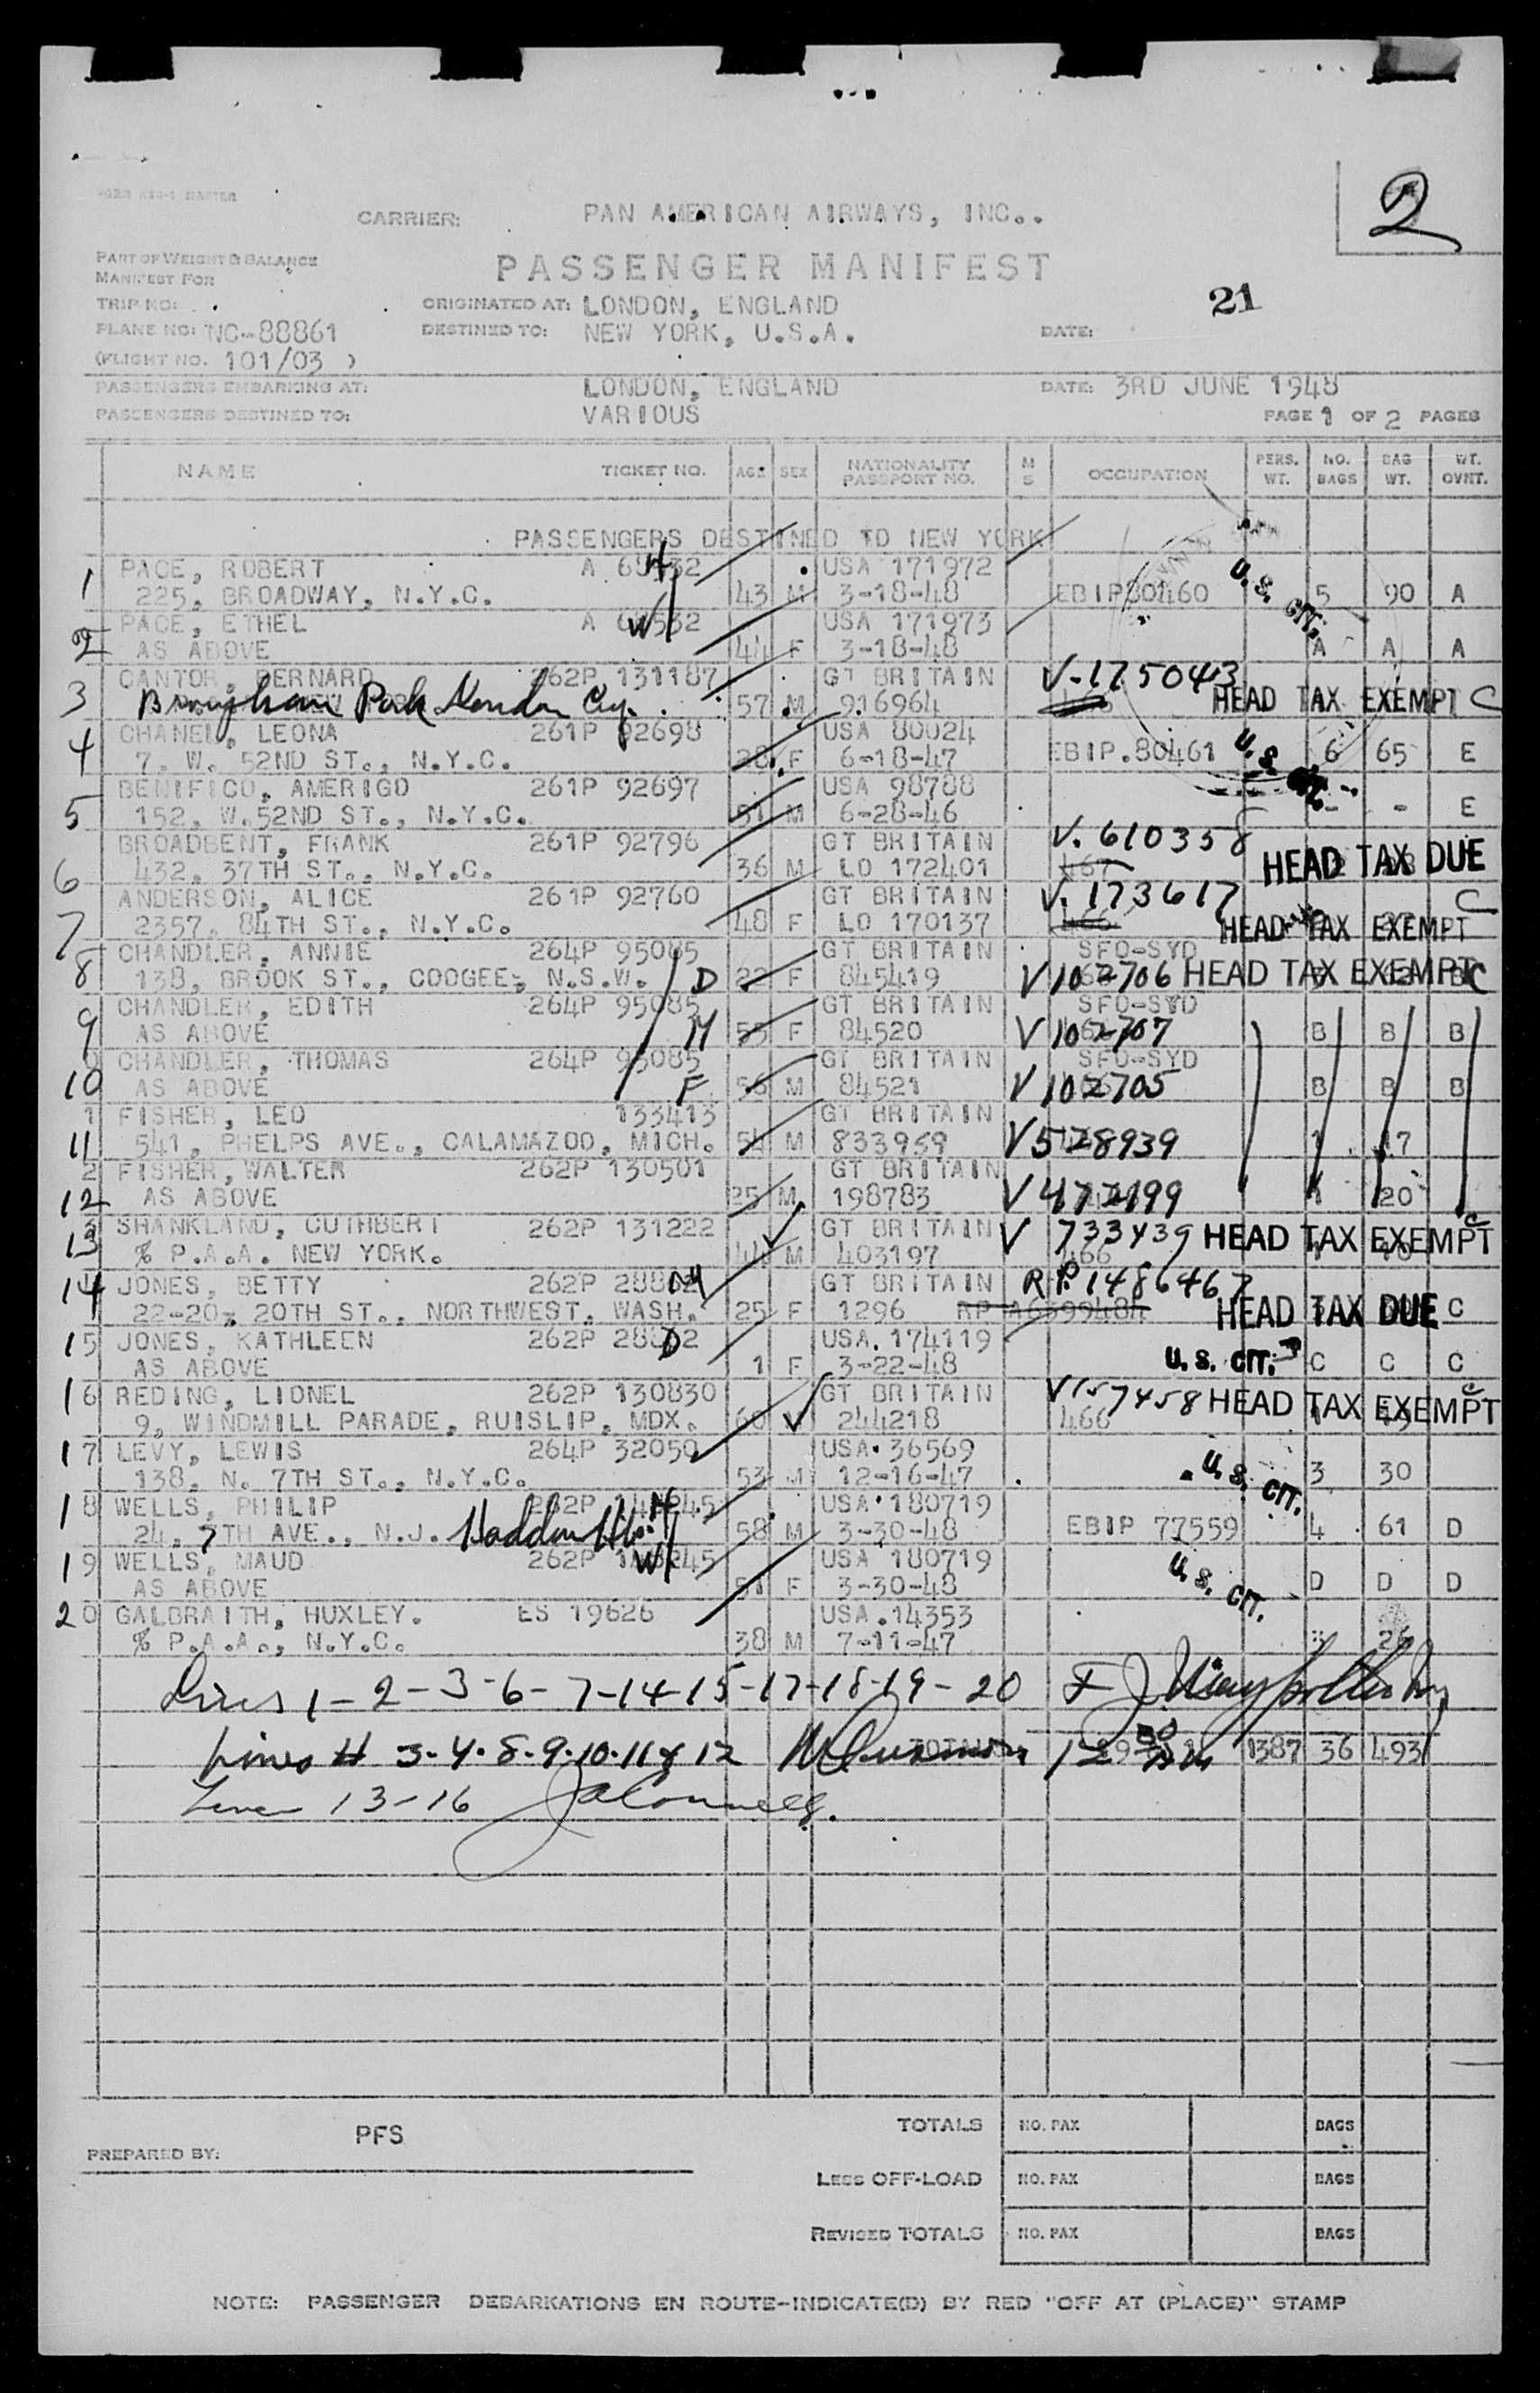 2
FORM
CARRIER: PAN AMERICAN AIRWAYS, INC..
PART OF WEIGHT & BALANCE
MANIFEST FOR
PASSENGER MANIFEST
TRIP NO: ORIGINATED AT: LONDON, ENGLAND 21
PLANE NO: NC-88861 DESTINED TO: NEW YORK, U.S.A. DATE:
(FLIGHT NO. 101/03 )
PASSENGERS EMBARKING AT: LONDON, ENGLAND DATE: 3RD JUNE 1948
PASSENGERS DESTINED TO: VARIOUS PAGE 1 OF 2 PAGES
NAME TICKET NO. AGE SEX NATIONALITY PASSPORT NO. M S OCCUPATION PERS. WT. NO. BAGS BAG WT. WT. OVRT.
PASSENGERS DESTINED TO NEW YORK
PACE, ROBERT A H USA 171972
1 225, BROADWAY, N.Y.C. 43 M 3-18-48 EBIP80460 U.S. CIT. 5 90 A
PACE, ETHEL A W USA 171973
2 AS ABOVE 44 F 3-18-48 A A A
CANTOR, BERNARD 262P 131187 GT BRITAIN V-1175043
3 Park London 57 M 916964 HEAD TAX EXEMPT C
CHANEL, LEONA 261P 92698 USA 80024
4 7, W. 52ND ST., N.Y.C. 28 F 6-18-47 EBIP.80461 U.S. CIT. 6 65 E
BENIFICO, AMERIGO 261P 92697 USA 98788
5 152, W.52ND ST., N.Y.C. 51 M 6-28-46 - - E
BROADBENT, FRANK 261P 92796 GT BRITAIN V. 610358
6 432, 37TH ST., N.Y.C. 36 M LO 172401 467 HEAD TAX DUE
ANDERSON, ALICE 261P 92760 GT BRITAIN V. 173617 C
7 2357, 84TH ST., N.Y.C. 48 F LO 170137 466 HEAD TAX EXEMPT
CHANDLER, ANNIE 264P 95085 GT BRITAIN SFO-SYD
8 138, BROOK ST., COOGEE, N.S.W. D 22 F 845419 V 102706 HEAD TAX EXEMPT C
CHANDLER, EDITH 264P 95085 GT BRITAIN SFO-SYD
9 AS ABOVE M 55 F 84520 V 102707 B B B
CHANDLER, THOMAS 264P 95085 GT BRITAIN SFO-SYD
10 AS ABOVE F 56 M 84521 V 102705 B B B
1 FISHER, LEO 133413 GT BRITAIN
11 541, PHELPS AVE., CALAMAZOO, MICH. 54 M 833959 V 528939 1 17
2 FISHER, WALTER 262P 130501 GT BRITAIN
12 AS ABOVE 25 M 198783 V 472199 1 20
3 SHANKLAND, CUTHBERT 262P 131222 GT BRITAIN V 733439 HEAD TAX EXEMPT C
13 % P.A.A. NEW YORK. 44 M 403197 466
14 JONES, BETTY 262P M GT BRITAIN R.P. 1486467
22-20, 20TH ST., NORTHWEST, WASH. 25 F 1296 RP A639948A HEAD TAX DUE C
15 JONES, KATHLEEN 262P D USA. 174119
AS ABOVE 1 F 3-22-48 U.S. CIT. C C C
16 REDING, LIONEL 262P 130830 GT BRITAIN V157458 HEAD TAX EXEMPT C
9, WINDMILL PARADE, RUISLIP, MDX. 60 244218 466
17 LEVY, LEWIS 264P 32050 USA. 36569
138, N. 7TH ST., N.Y.C. 53 M 12-16-47 U.S. CIT. 3 30
18 WELLS, PHILIP 262P H USA 180719
24, 7TH AVE., N.J. 58 M 3-30-48 EBIP 77559 4 61 D
19 WELLS, MAUD 262P W USA 180719
AS ABOVE 51 F 3-30-48 U.S. CIT. D D D
20 GALBRAITH, HUXLEY. ES 19626 USA.14353
% P.A.A., N.Y.C. 38 M 7-11-47 26
Lines 1-2-3-6-7-14-15-17-18-19-20
Lines # 3-4-8-9-10-11 & 12 TOTALS 1387 36 493
Lines 13-16
PFS
PREPARED BY:
TOTALS NO. PAX BAGS
LESS OFF-LOAD NO. PAX BAGS
REVISED TOTALS NO. PAX BAGS
NOTE: PASSENGER DEBARKATIONS EN ROUTE-INDICATE(D) BY RED "OFF AT (PLACE)" STAMP